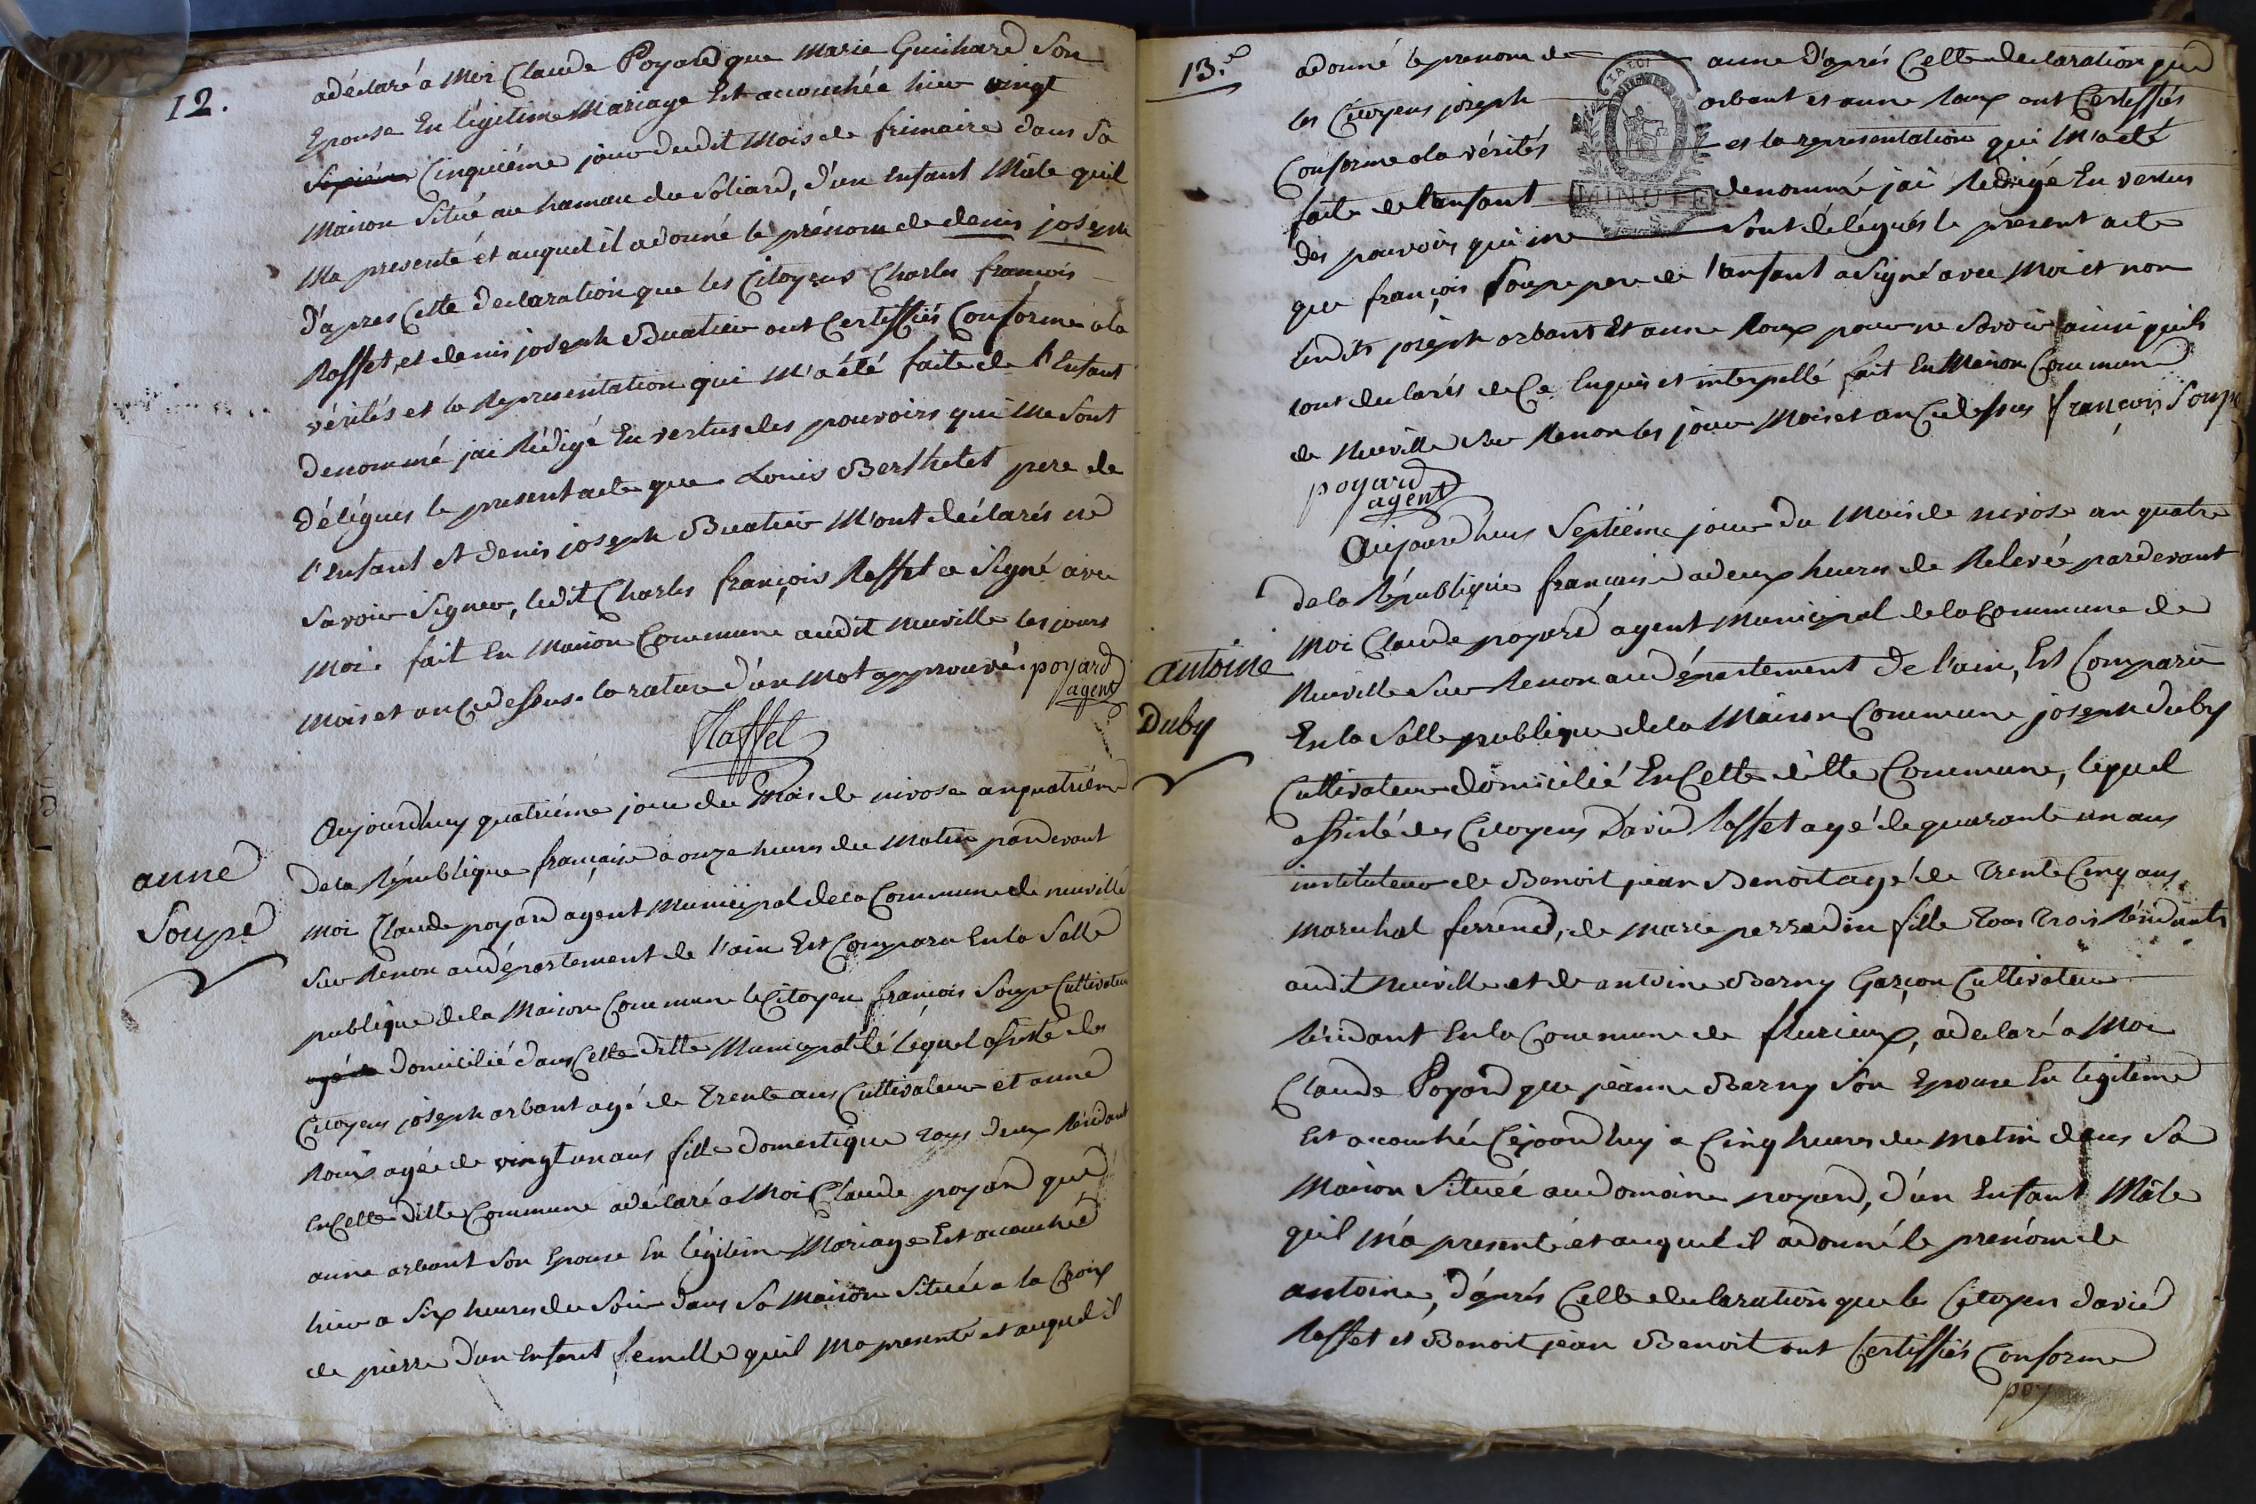 12.
a déclaré à Moi Claude Poyard que Marie Guichard Son
Epouse En légitime Mariage Est accouchée hier vingt
Cinquième jour dudit Mois de frimaire dans Sa
Maison Situé au hamau du Soliard, d'un Enfant Mâle quil
Ma presenté et auquel il a donné le prénom de denis joseph
D'apres Cette declaration que les Citoyens Charles françois
Raffet, et denis joseph Buatier ont Certiffiés Conforme a la
vérités et la Représentation qui M'a été faite de l'Enfant
denommé jai Rédigé En vertus des pouvoirs qui Me Sont
délégues le present acte que Louis Berthetet pere de
l'Enfant et denis joseph Buatier M'ont déclarés ne
Savoir Signer, ledit Charles françois Raffet a Signé avec
Moi. fait En Maison Commune audit Neuville les jours
Mois et an Cy dessus. la rature d'un Mot approuvé. poyard
agent
Raffet
anne
Soupe
Aujourdhuy quatriéme jour du Mois de nivose an quatriéme
de la République française a onze heures du Matin pardevant
Moi Claude poyard agent Municipal de la Commune de neuville
Sur Renon au département de l'ain Est Comparu En la Salle
publique de la Maison Commune le Citoyen françois Soupe Cultivateur
agé de domicilié dans Cette ditte Municipalité lequel assisté des
Citoyens joseph arbant agé de Trente ans Cultivateur et anne
Roux agée de vingt un ans fille domestique tous deux Résidant
En Cette ditte Commune a déclaré a Moi Claude poyard que
anne arbant Son Epouse En légitime Mariage Est accouchée
hier a Six heures du Soir dans Sa Maison Située a la Croix
de pierre d'un Enfant femelle quil Ma presenté et auquel il
13.e
a donné le prenom de anne d'aprés Cette declaration que
les Citoyens joseph arbant et anne Roux ont Certiffiés
Conforme a la vérités et la representation qui M'a été
faite de l'enfant denommé jai Redigé En vertus
des pouvoirs qui me Sont délégués le present acte
que françois Soupe pere de l'enfant a Signé avec Moi et non
Lesdits joseph arbant et anne Roux pour ne Savoir ainsi quils
ont declarés de Ce Enquis et interpellé fait En Maison Commune
de Neuville Sur Renon les jour Mois et an Cy dessus françois Soupe
poyard
agent
LA LOI
MINUTE
antoine
Duby
Aujourdhuy Septiéme jour du Mois de nivose an quatre
de la République française a deux heures de Relevée pardevant
Moi Claude poyard agent Municipal de la Commune de
Neuville Sur Renon au département de l'ain, Est Comparu
En la Salle publique de la Maison Commune joseph duby
Cultivateur domicilié En Cette ditte Commune, lequel
assisté des Citoyens David Raffet agé de quarante un ans
instituteur de Benoit jean Benoit agé de Trente Cinq ans
Marechal ferrend, de Marie perradin fille Tous Trois Résidants
audit Neuville et de antoine Berny Garçon Cultivateur
Résidant En la Commune de flurieux, a declaré a Moi
Claude Poyard que jeanne Berny Son Epouse En légitime
Est accouchée Cejourdhuy a Cinq heures du Matin dans Sa
Maison Situeé au domaine poyard, d'un Enfant Mâle
quil M'a presenté et auquel il a donné le prenom de
antoine, d'aprés Cette declaration que le Citoyen david
Raffet et Benoit jean Benoit ont Certiffiés Conforme
poy